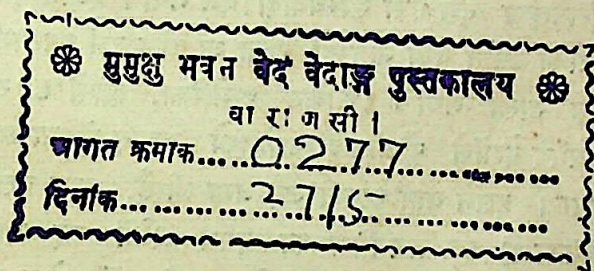 ❀ मुमुक्षु भवन वेद वेदाङ्ग पुस्तकालय ❀
वाराणसी ।
आगत क्रमाक......0277............
दिनांक......27/5............